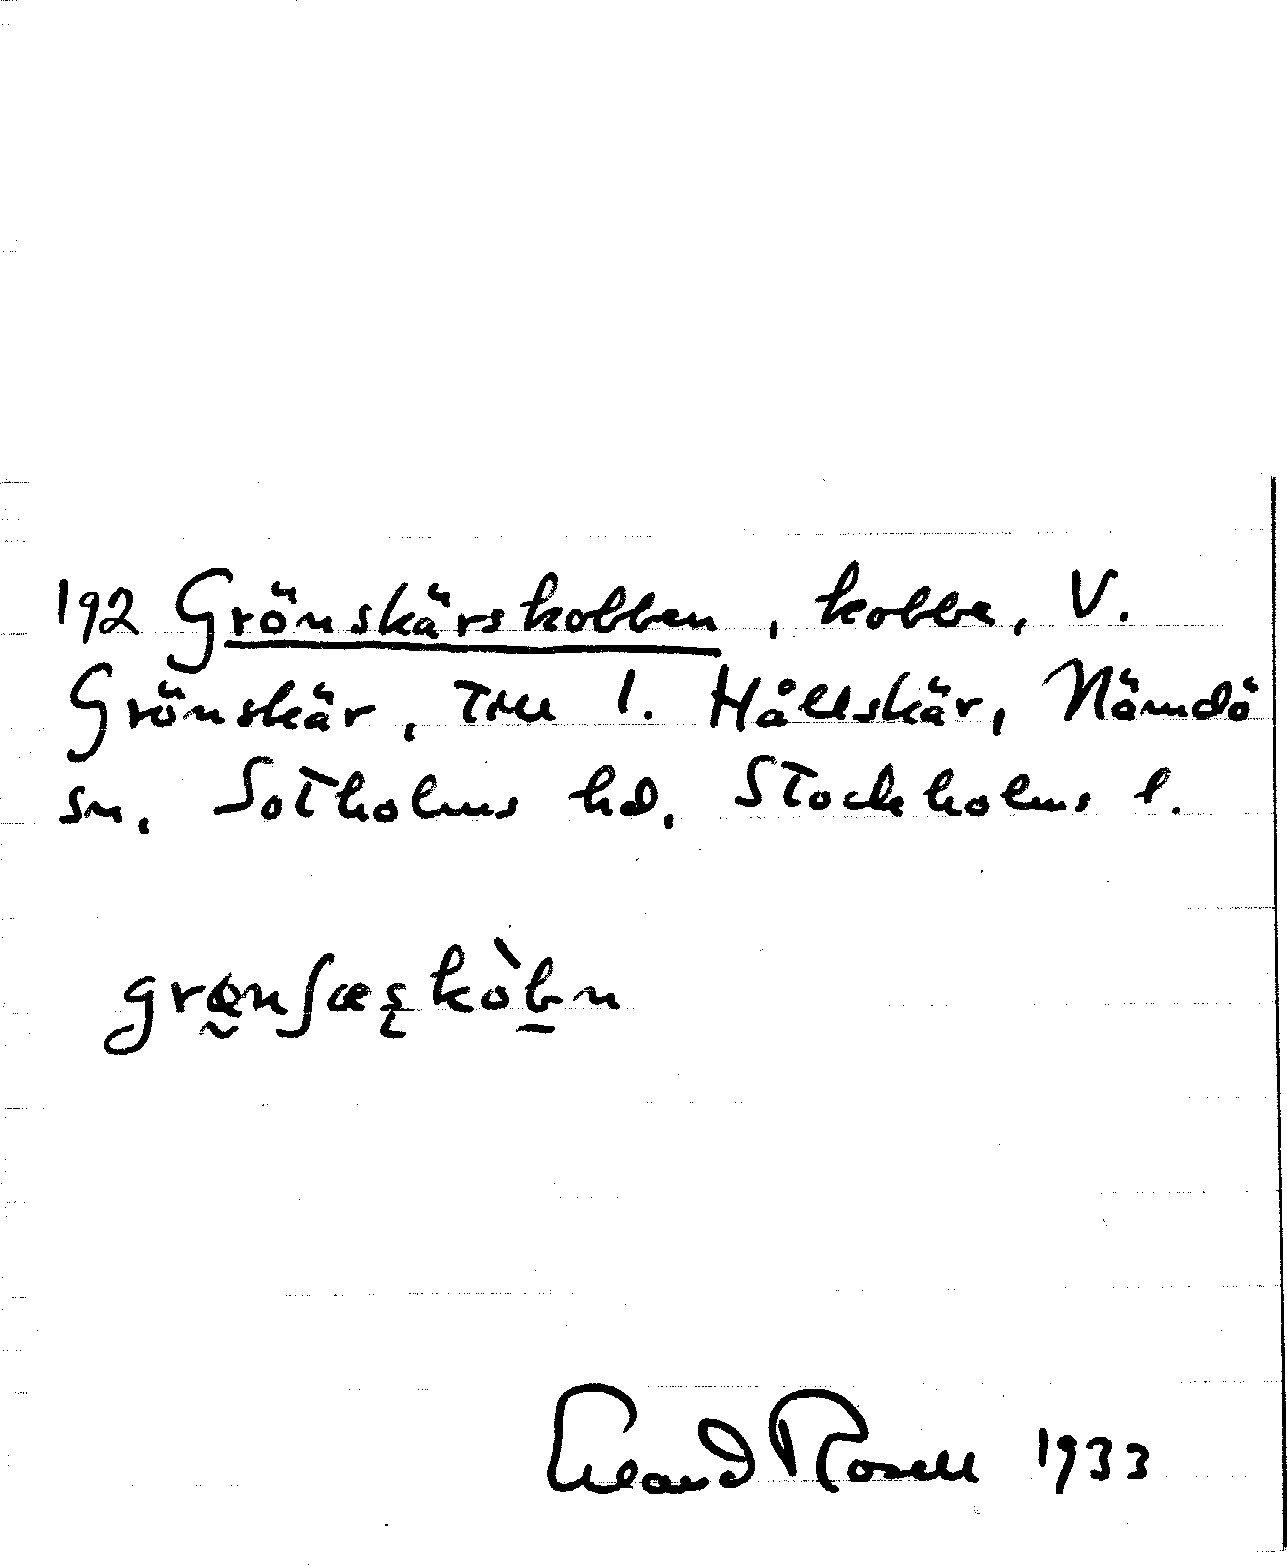 192 Grönskärskobben, kobbe, V.
Grönskär, till l. Hållskär, Nämdö
sn, Sotholms hd, Stockholms l.
grœ̰nʃæʂkòb̲n
Erland Rosell 1933